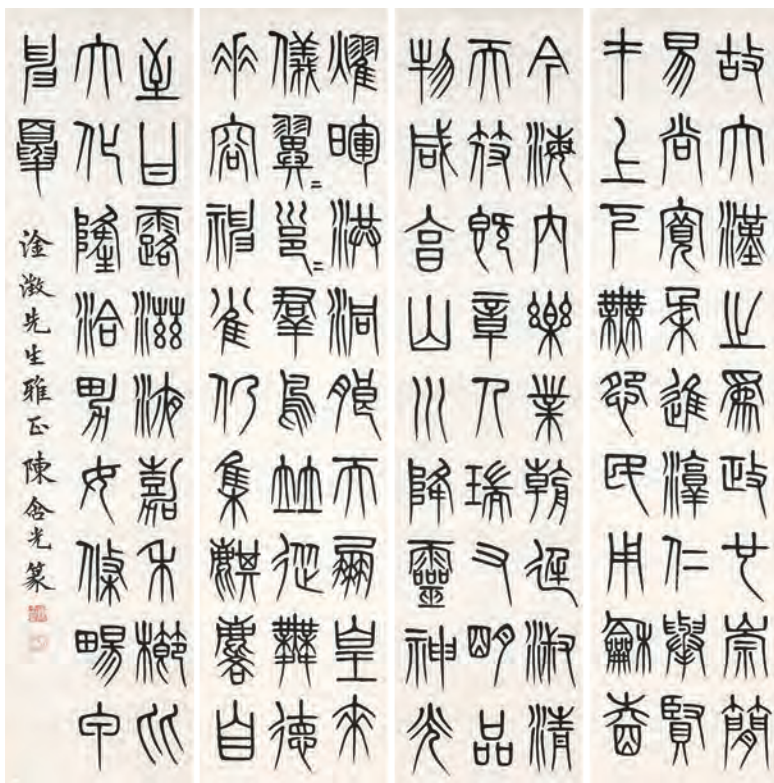 故大漢之爲政也崇簡
易尚寬柔進淳仁舉賢
才上下無怨民用龢睦
今海內樂業朝廷淑清
天符既章人瑞又明品
物咸亨山川降靈神光
燿暉洪洞朗天鳳皇來
儀翼=邕=羣鳥並從舞德
垂容神雀仍集麒麐自
至甘露滋液嘉禾櫛比
大化隆洽男女條暢
淦澂先生雅正陳含光篆